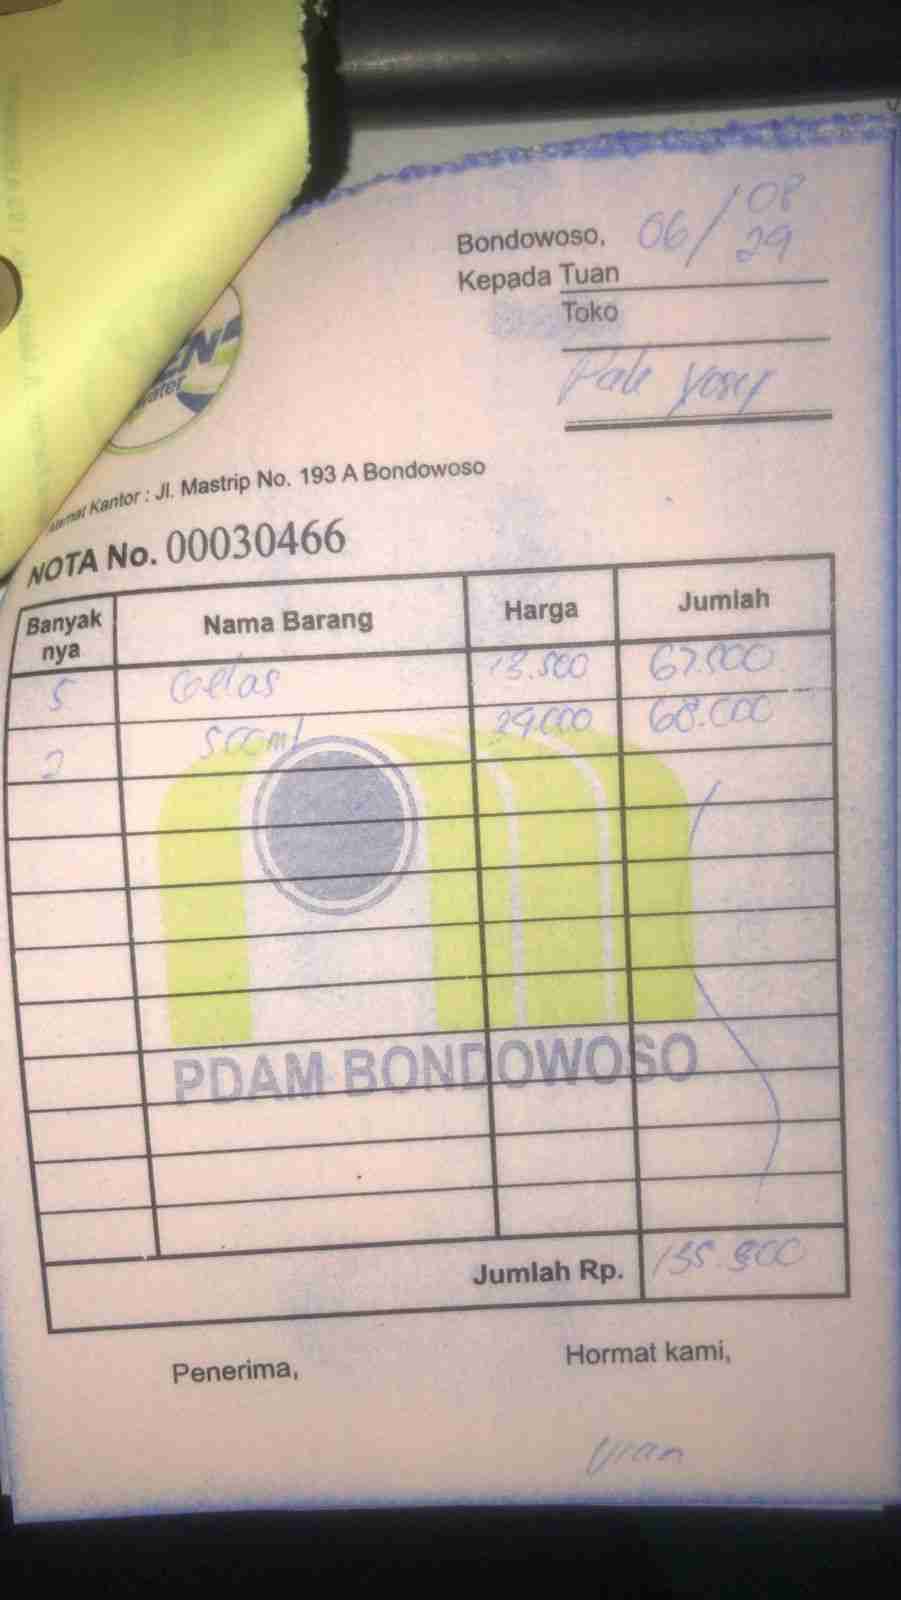 Bondowoso, 06/08
29
Kepada Tuan
Toko
Pak Yosy
water
Kantor : Jl. Mastrip No. 193 A Bondowoso
NOTA No. 00030466
Banyak nya Nama Barang Harga Jumlah
5 Gelas 13.500 67.500
2 500ml 68.000
PDAM BONDOWOSO
Jumlah Rp. 135.500
Penerima, Hormat kami,